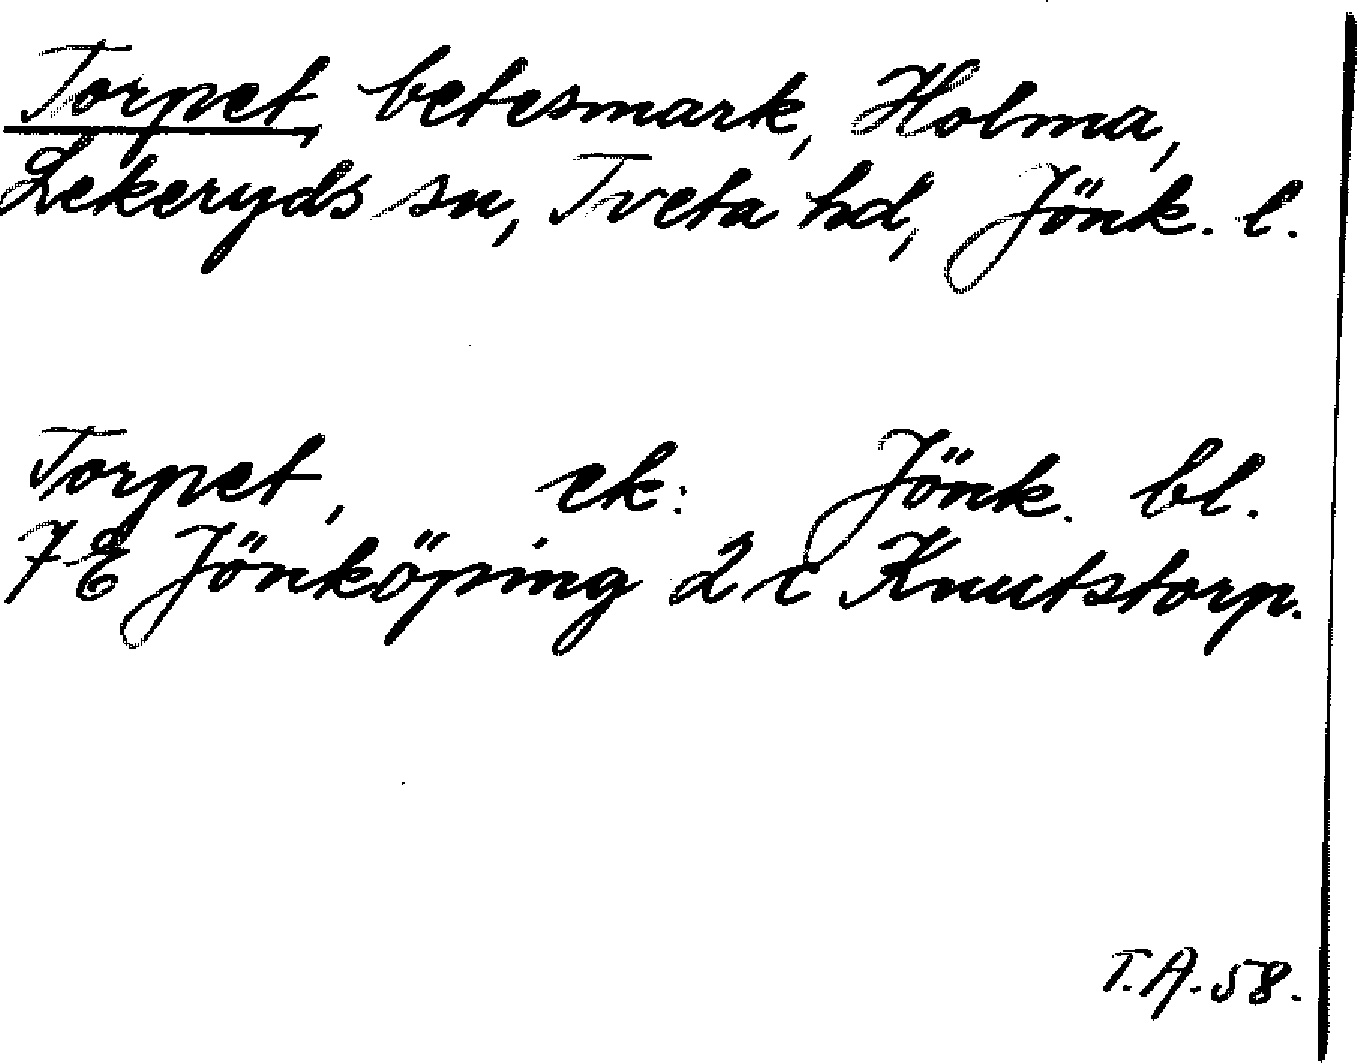 Torpet, betesmark, Holma,
Lekeryds sn, Tveta hd, Jönk. l.
Torpet, ek: Jönk. bl.
7E Jönköping 2 c Knutstorp.
T.A. 58.